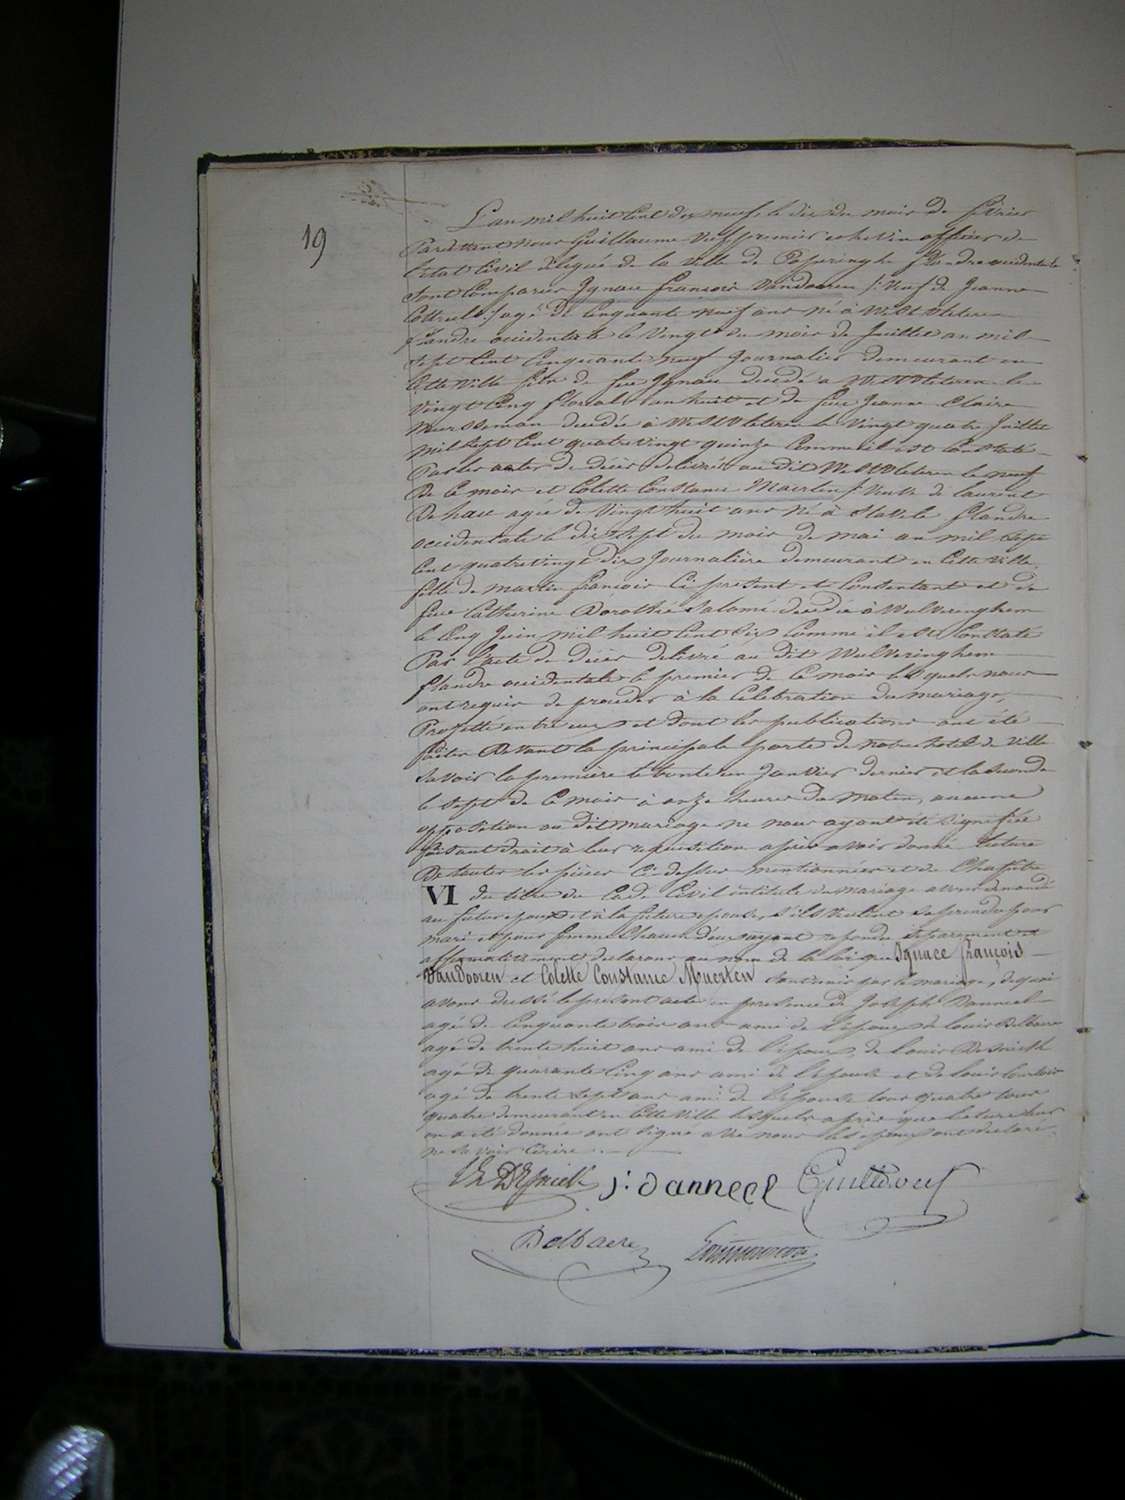 19
L'an mil huit cent dix neuf, le dix du mois de février
Pardevant nous Guillaume premier echevin officier de
l'etat Civil délégué de la ville de Poperinghe flandre occidentale
Sont Comparus Ignace François Vandooren /: Veuf de Jeanne
agé de Cinquante neuf ans né à Westvleteren
flandre occidentale le Vingt du mois de Juillet an mil
Sept Cent Cinquante neuf Journalier demeurant en
Cette Ville fils de feu Ignace decédé a Westvleteren le
Vingt Cinq floreal an huit et de feue Jeanne Claire
decedée à Westvleteren le Vingt quatre Juillet
mil Sept Cent quatre vingt quinze Comme il est Constaté
Par les actes de décès delivrés au dit Westvleteren le neuf
de Ce mois et Colette Constance Maerten /: Veuve de Laurent
Dehaee agée de Vingt huit ans né à Stavele flandre
occidentale le dix Sept du mois de mai an mil Sept
Cent quatre vingt dix Journalière demeurant en Cette Ville
fille de martin françois Ci present et Consentant et de
feue Catherine Dorothée Salomé decedée à Wulveringhem
le Cinq Juin mil huit Cent Six Comme il est Constaté
Par l'acte de décès delivré au dit Wulveringhem
flandre occidentale le premier de Ce mois les quels nous
ont requis de proceder à la Celebration du mariage,
Projetté entre eux et dont les publications ont été
faites Devant la principale porte de notre hotel de Ville
Savoir la premiere le trente un Janvier dernier et la Seconde
le Sept de Ce mois à onze heures du matin, aucune
opposition au dit mariage ne nous ayant été Signifiée
faisant droit à leur requisition après avoir donné lecture
De toutes les pièces Ci dessus mentionnées et du Chapitre
VI du titre du Code Civil intitulé du mariage avons demandé
au futur epoux et à la future epouse, S'ils Veulent Se prendre pour
mari et pour femme Chacun d'eux ayant repondu Separement et
affirmativement declarons au nom de la loi que Ignace François
Vandooren et Colette Constance Maerten Sont unis par le mariage, de quoi
avons dressé le present acte en presence de Joseph Danneel
agé de Cinquante trois ans ami de l'epoux, de louis Delbaere
agé de trente huit ans ami de l'epoux, de louis Desmidt
agé de quarante Cinq ans ami de l'epouse et de louis
agé de trente Sept ans ami de l'epouse tous quatre tous
quatre demeurant en Cette Ville les quels après que lecture leur
en a été donnée ont Signé avec nous les epoux ont declaré
ne Savoir ecrire.
j: danneel
Delbaere